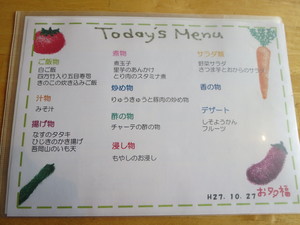 Today's Menu
ご飯物
白ご飯
四方竹入り五目寿司
きのこの炊き込みご飯
汁物
みそ汁
揚げ物
なすのタタキ
ひじきのかき揚げ
吾岡山のいも天
煮物
煮玉子
里芋のあんかけ
とり肉のスタミナ煮
炒め物
りゅうきゅうと豚肉の炒め物
酢の物
チャーテの酢の物
浸し物
もやしのお浸し
サラダ類
野菜サラダ
さつま芋とおからのサラダ
香の物
デザート
しそようかん
フルーツ
H27.10.27
お多福